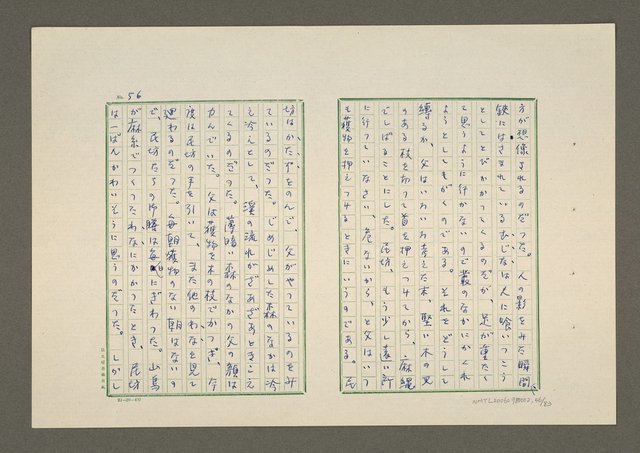 方が想像されるのだった。人の影をみた瞬間、
鋏にはさまれているむじなは人に喰いつこう
としてとびかかってくるのだが、足が重たく
て思うように行かないので叢のなかにかくれ
ようとしてもがくのである。それをどうして
縛るか、父はいろいろ考えた末、堅い木の叉
のある枝を切って首を押えつけてから、麻縄
でしばることにした。民坊、もう少し遠い所
に行っていなさい、危ないから、と父はいつ
も獲物を押えつけるときにいうのである。民
No. 56
坊はかたずをのんで、父がやっているのをみ
ているのだった。じめじめした森のなかは冷
え冷えとして、渓の流れがざあざあときこえ
てくるのだった。薄暗い森のなかの父の顔は
力んでいた。父は獲物を木の枝でかつぎ、今
度は民坊の手を引いて、また他のわなを見て
廻わるのだった。毎朝獲物のない朝はないの
で、民坊たちの
は毎日にぎわった。山鳥
が麻糸でつくったわなにかかったとき、民坊
は一ばんかわいそうに思うのだった。しかし
NMTL20060980002.56/83